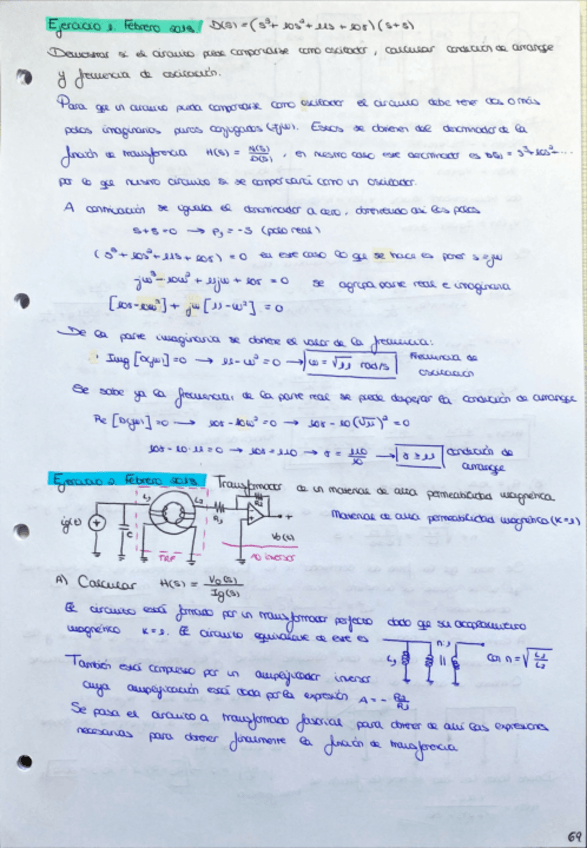 Ejercicio 1. Febrero 2019 D(s) = (s³ + 10s² + 11s + 10σ)(s+5)
Demostrar si el circuito puede comportarse como oscilador, calcular condición de arranque
y frecuencia de oscilación.
Para que un circuito pueda comportarse como oscilador el circuito debe tener dos o más
polos imaginarios puros conjugados (±jω). Estos se obtienen del denominador de la
función de transferencia H(s) = N(s)/D(s), en nuestro caso ese denominador es D(s) = s³+10s²...
por lo que nuestro circuito si se comportará como un oscilador.
A continuación se iguala el denominador a cero, obteniendo así los polos
s+5=0 → P₁ = -5 (polo real)
(s³ + 10s² + 11s + 10σ) = 0 en este caso lo que se hace es poner s=jω
-jω³ - 10ω² + 11jω + 10σ = 0 se agrupa parte real e imaginaria
[10σ - 10ω²] + jω [11 - ω²] = 0
De la parte imaginaria se obtiene el valor de la frecuencia:
· Img [D(jω)] = 0 → 11 - ω² = 0 → ω = √11 rad/s Frecuencia de
oscilación
Se sabe ya la frecuencia, de la parte real se puede despejar la condición de arranque
Re [D(jω)] = 0 → 10σ - 10ω² = 0 → 10σ - 10(√11)² = 0
10σ - 10·11 = 0 → 10σ = 110 → σ = 110/10 → σ ≥ 11 condición de
arranque
Ejercicio 2. Febrero 2019 Transformador de un material de alta permeabilidad magnética.
Material de alta permeabilidad magnética (K=1)
ig(t) C R₁ R₂ + Vo(t)
TRF AO inversor
A) Calcular H(s) = Vo(s)/Ig(s)
El circuito está formado por un transformador perfecto dado que su acoplamiento
magnético K=1. El circuito equivalente de este es L₁ n:1 con n = √(L₁/L₂)
También está compuesto por un amplificador inversor
cuya amplificación está dada por la expresión A = -R₂/R₁
Se pasa el circuito a transformado fasorial para obtener de ahí las expresiones
necesarias para obtener finalmente la función de transferencia
69